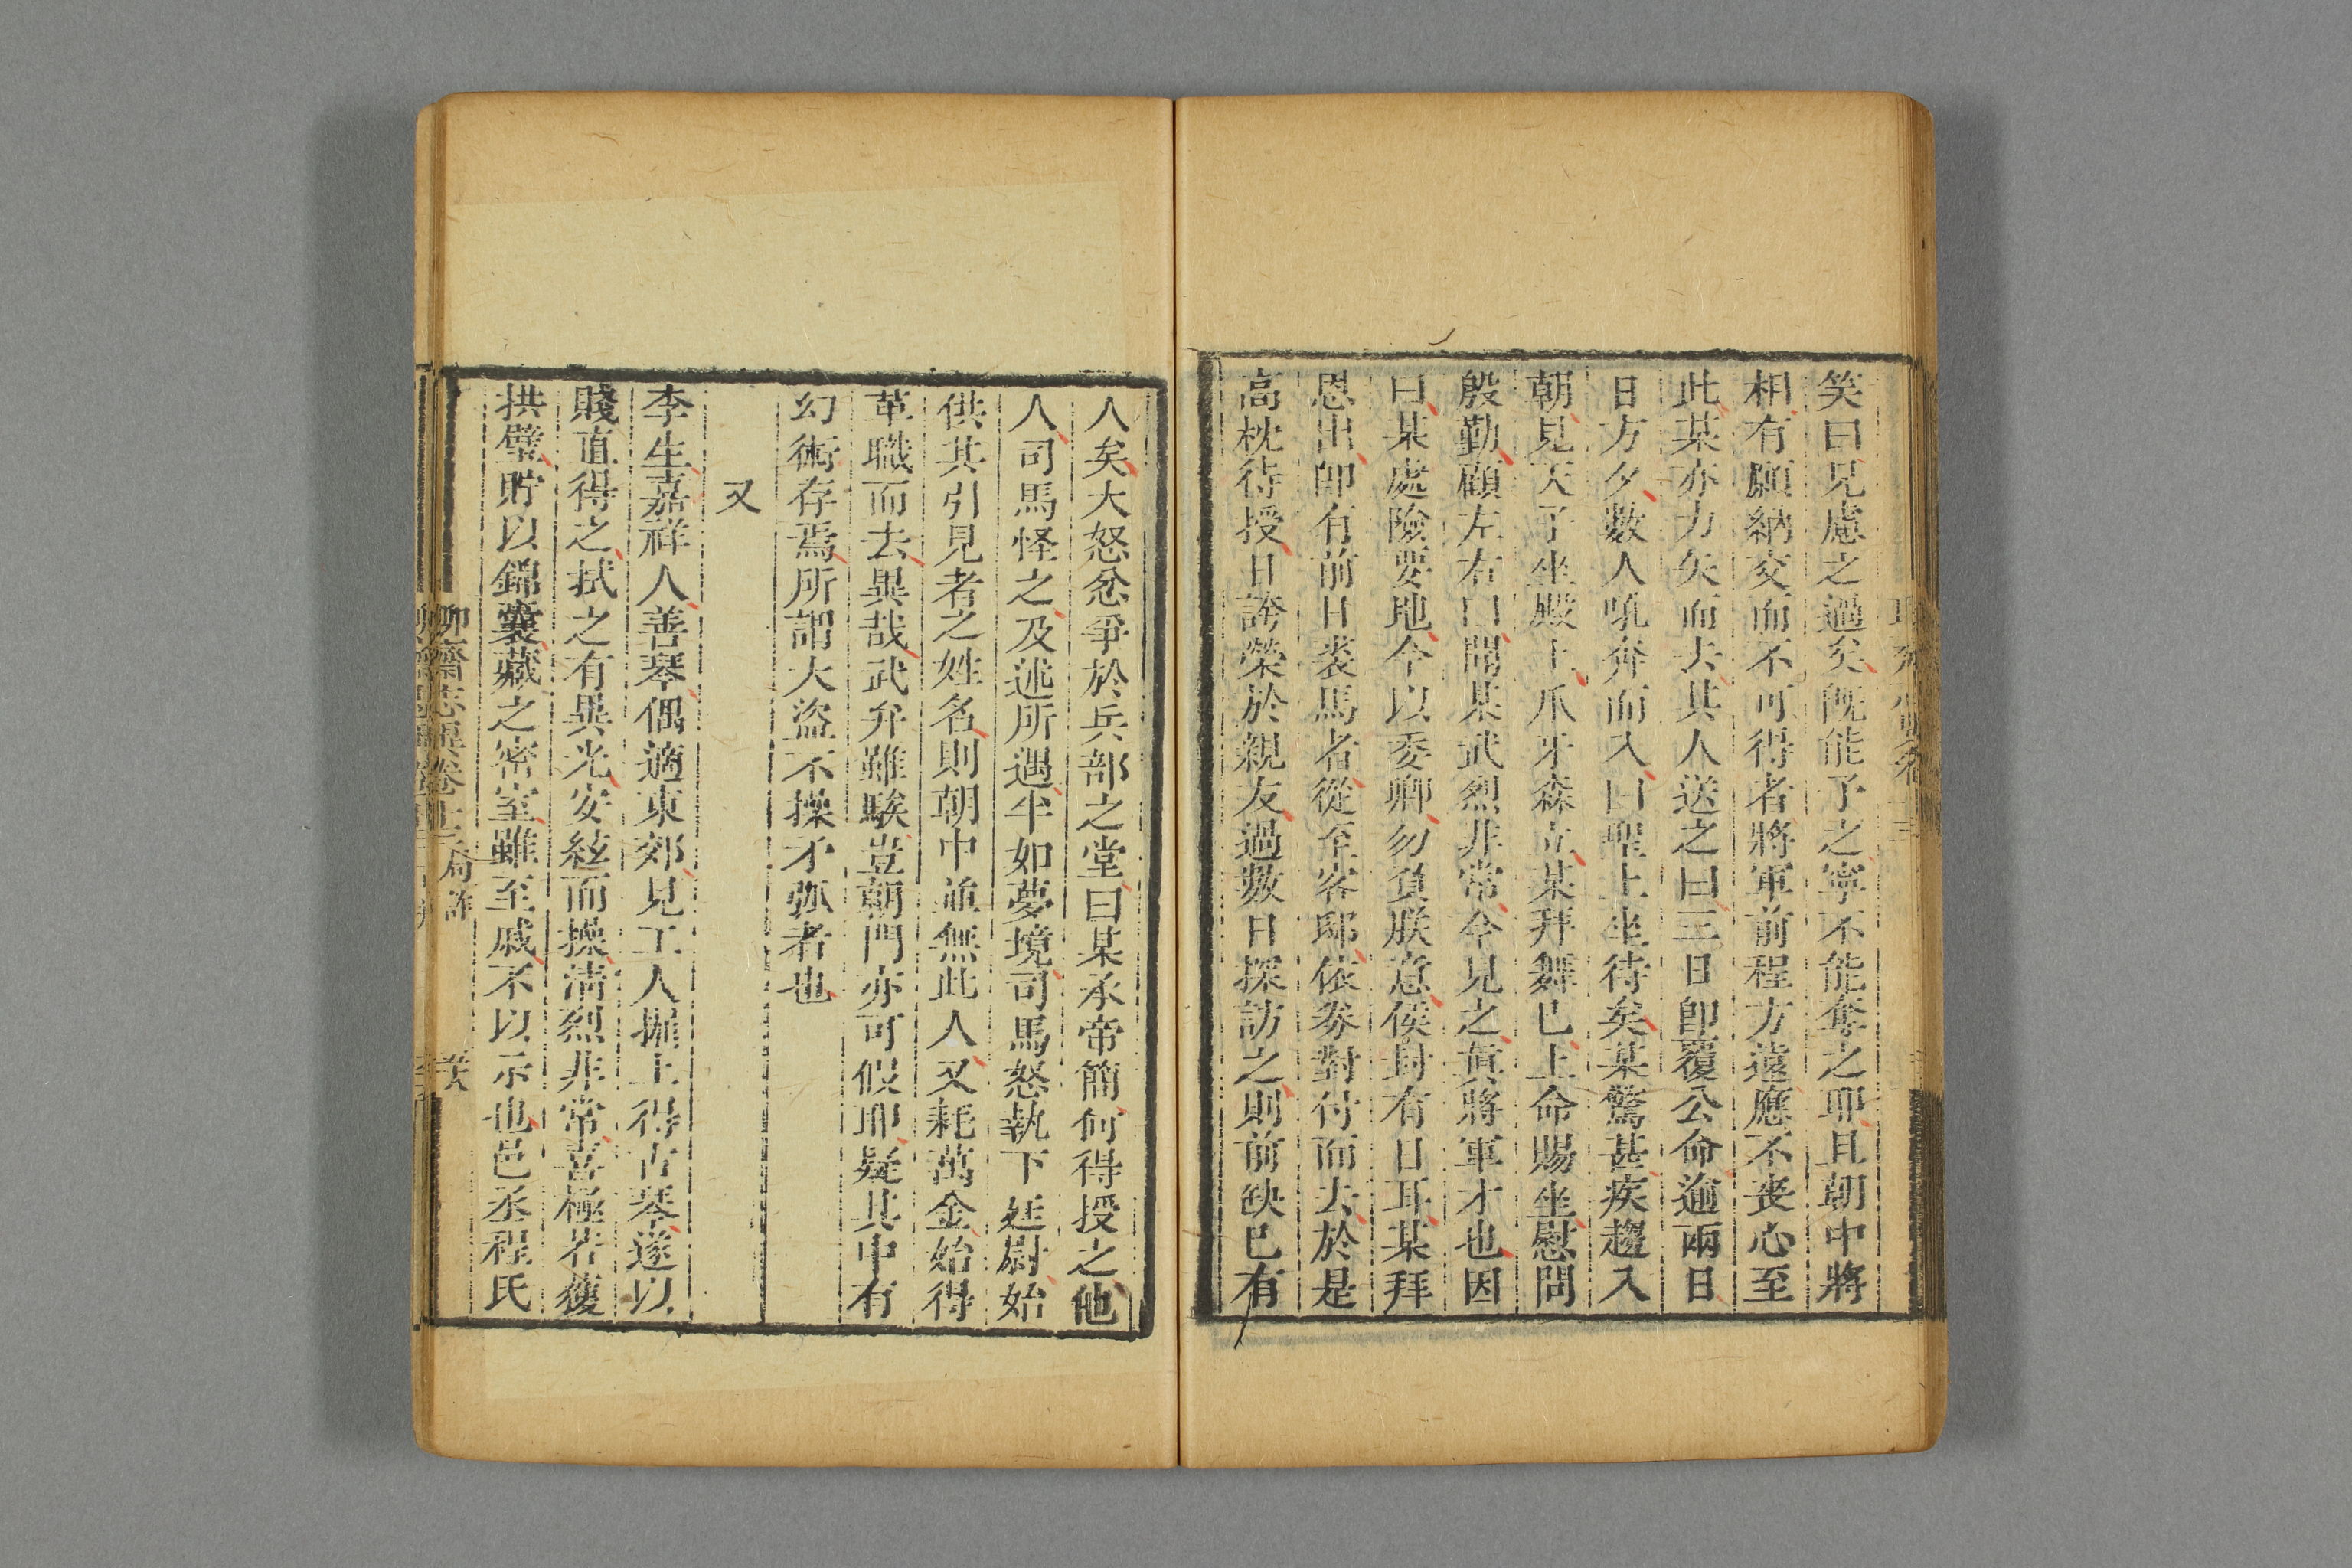 笑曰兄慮之過矣既能予之寧不能奪之耶且朝中將
相有願納交而不可得者將軍前程方遠應不喪心至
此某亦力矢而去其人送之曰三日卽覆公命逾兩日
日方夕數人吼奔而入曰聖上坐待矣某驚甚疾趨入
朝見天子坐殿上爪牙森立某拜舞已上命賜坐慰問
殷勤顧左右曰聞某武烈非常今見之眞將軍才也因
曰某處險要地今以委卿勿負朕意侯封有日耳某拜
恩出卽有前日裘馬者從至客邸依劵對付而去於是
高枕待授日誇榮於親友過數日探訪之則前缺已有
人矣大怒忿爭於兵部之堂曰某承帝簡何得授之他
人司馬怪之及述所遇半如夢境司馬怒執下廷尉始
供其引見者之姓名則朝中並無此人又耗萬金始得
革職而去異哉武弁雖騃豈朝門亦可假耶疑其中有
幻術存焉所謂大盜不操矛弧者也
又
李生嘉祥人善琴偶適東郊見工人掘土得古琴遂以
賤直得之拭之有異光安絃而操淸烈非常喜極若獲
拱璧貯以錦囊藏之密室雖至戚不以示也邑丞程氏
聊齋志異卷十三 局詐